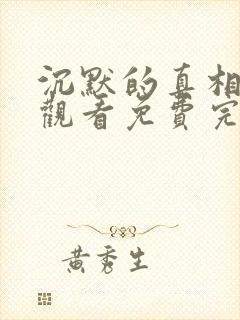 沉默的真相
觀看免費完
黃秀生